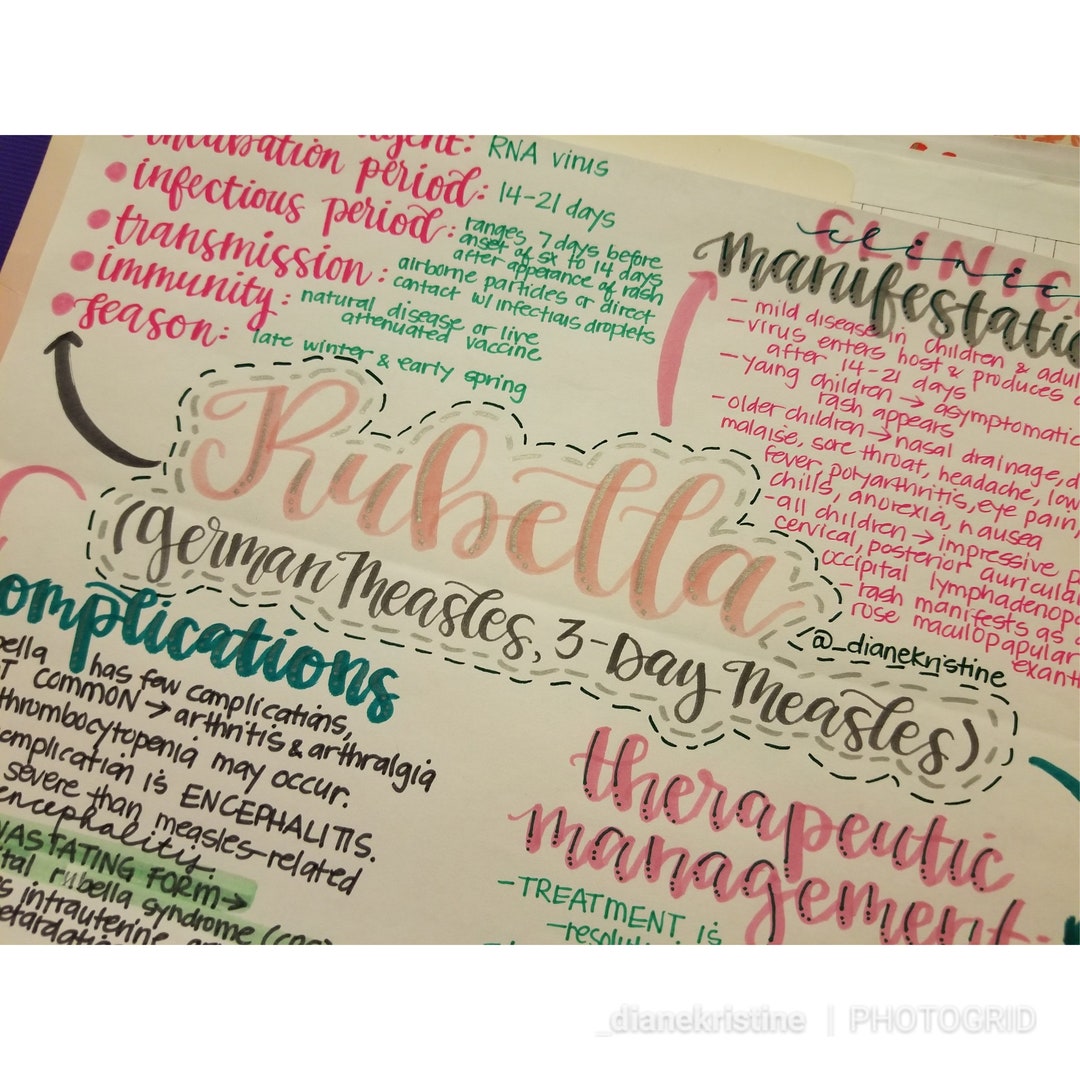 agent: RNA virus
incubation period: 14-21 days
infectious period: ranges 7 days before
onset of sx to 14 days
after apperance of rash
transmission: airborne particles or direct
contact w/ infectious droplets
immunity: natural disease or live
attenuated vaccine
season: late winter & early spring
CLINIC
clinic
manifestatio
- mild disease in children & adul
- virus enters host & produces
after 14-21 days
- young children → asymptomatic
rash appears
- older children → nasal drainage, d
malaise, sore throat, headache, low
fever, polyarthritis, eye pain,
chills, anorexia, nausea
- all children → impressive p
cervical, posterior auricular
occipital lymphadenopa
- rash manifests as a
rose maculopapular
exanth
Rubella
(German Measles, 3-Day Measles)
@_dianekristine
omplications
bella has few complications,
T COMMON → arthritis & arthralgia
thrombocytopenia may occur.
omplication is ENCEPHALITIS.
severe than measles-related
encephality.
VASTATING FORM →
ital rubella syndrome
s intrauterine
etardati
therapeutic
management
- TREATMENT is
- resolut
_dianekristine | PHOTOGRID